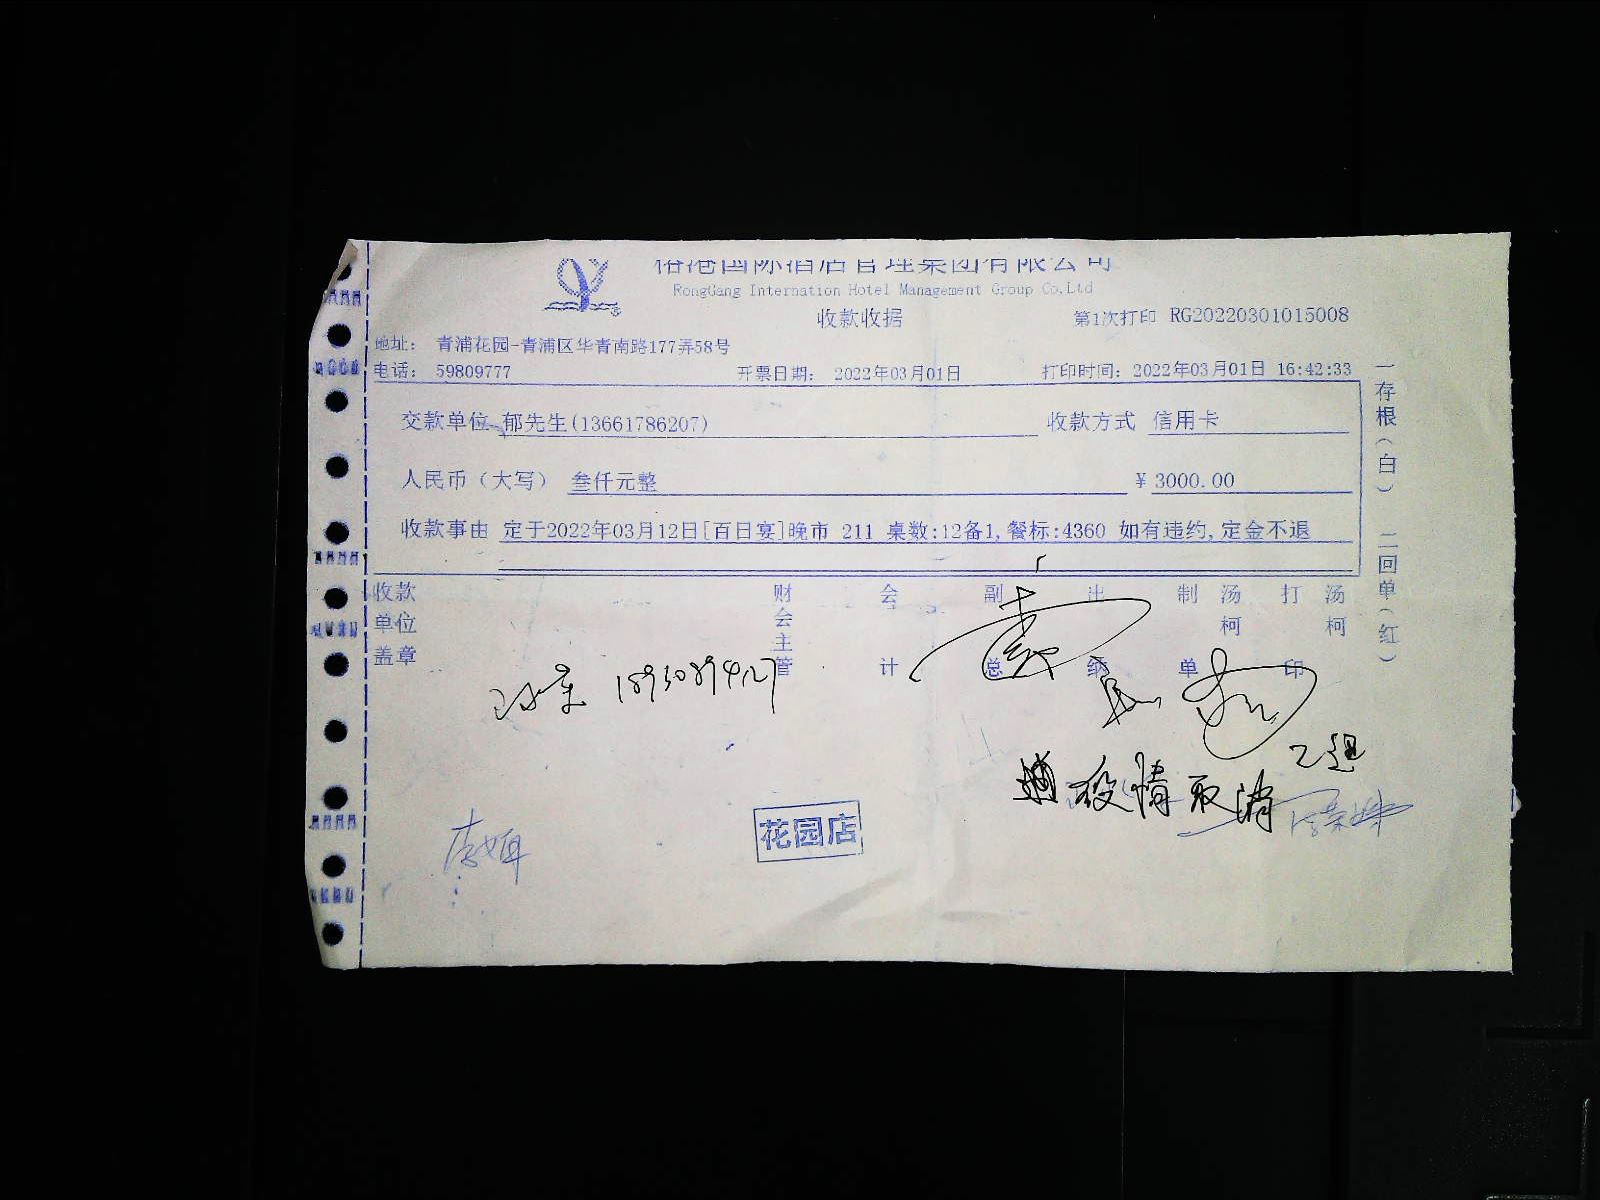 榕港国际酒店管理集团有限公司
RongGang Internation Hotel Management Group Co,Ltd
收款收据
第1次打印 RG20220301015008
地址: 青浦花园-青浦区华青南路177弄58号
电话: 59809777 开票日期: 2022年03月01日 打印时间: 2022年03月01日 16:42:33
交款单位 郁先生(13661786207) 收款方式 信用卡
人民币（大写） 叁仟元整 ¥ 3000.00
收款事由 定于2022年03月12日[百日宴]晚市 211 桌数:12备1,餐标:4360 如有违约,定金不退
收款单位盖章 财会主管 会计 副总 出纳 制单 汤柯 打印 汤柯
一存根（白） 二回单（红）
疫情取消
花园店